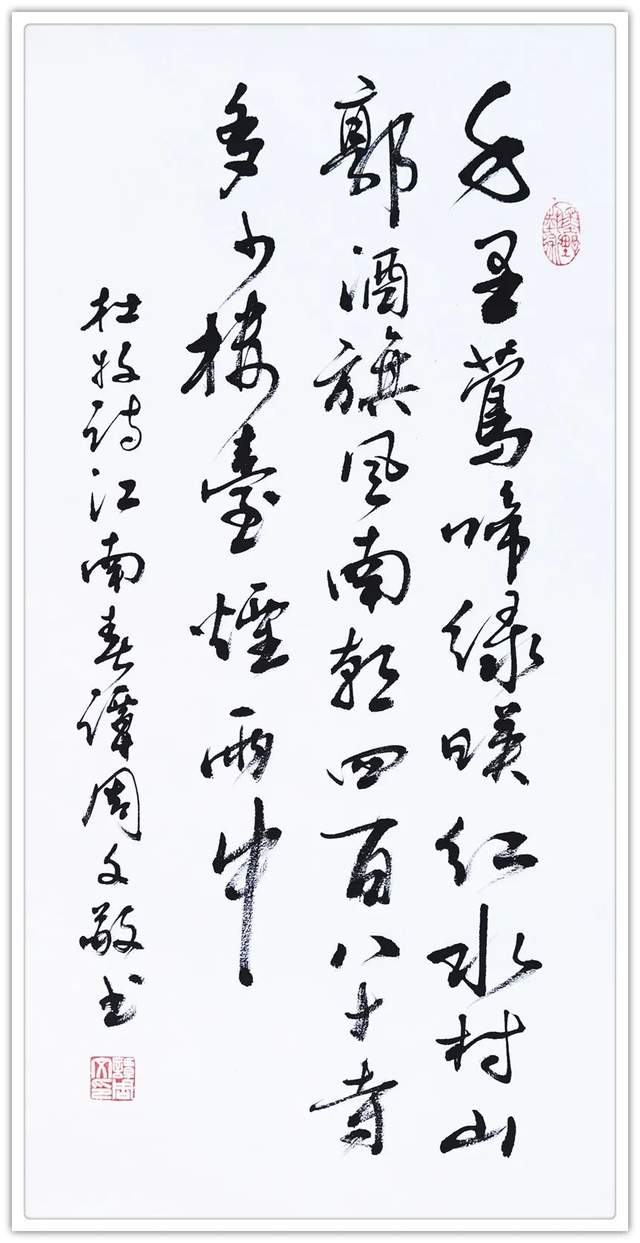 千里莺啼绿暎红水村山
郭酒旗风南朝四百八十寺
多少楼臺煙雨中
杜牧诗江南春谭周文敬书